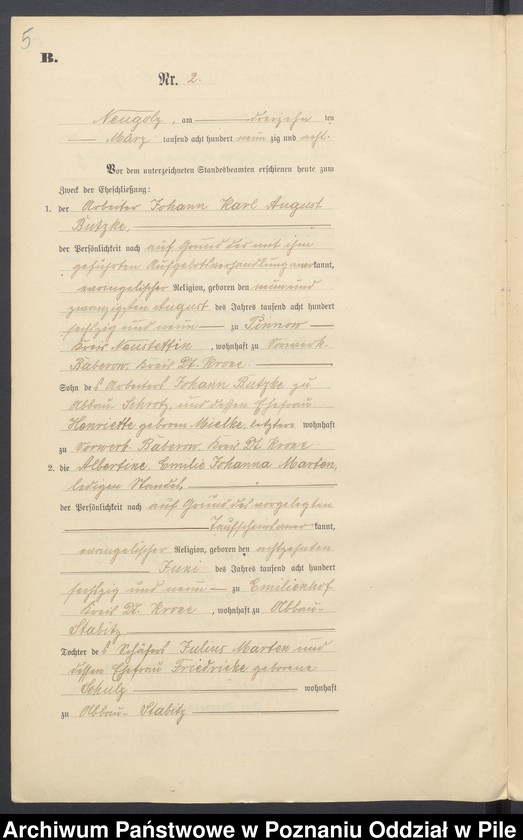 5
B.
Nr. 2.
Neugolz, am dreizehn ten
März tausend acht hundert neun zig und acht.
Vor dem unterzeichneten Standesbeamten erschienen heute zum
Zweck der Eheschließung:
1. der Arbeiter Johann Karl August
Butzke,
der Persönlichkeit nach auf Grund des mit ihm
geführten Aufgebotsverhandlung anerkannt,
evangelischer Religion, geboren den neunund
zwanzigsten August des Jahres tausend acht hundert
sechszig und neun zu Pinnow
Kreis Neustettin, wohnhaft zu Vorwerk
Bäberow, Kreis Dt. Krone.
Sohn des Arbeiters Johann Butzke zu
Abbau Schrotz, und dessen Ehefrau
Henriette geboren Mielke, letztere wohnhaft
zu Vorwerk Bäberow, Kreis Dt. Krone
2. die Albertine Emilie Johanna Marten,
ledigen Standes,
der Persönlichkeit nach auf Grund des vorgelegten
Taufscheins anerkannt,
evangelischer Religion, geboren den achtzehnten
Juni des Jahres tausend acht hundert
sechszig und neun zu Emilienhof
Kreis Dt. Krone, wohnhaft zu Abbau
Stabitz
Tochter des Schäfers Julius Marten und
dessen Ehefrau Friedricke geborene
Schulz wohnhaft
zu Abbau Stabitz
Archiwum Państwowe w Poznaniu Oddział w Pile